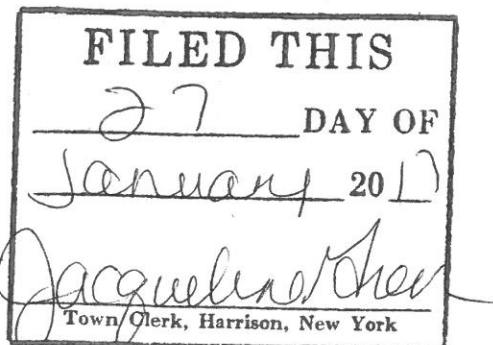 FILED THIS
27 DAY OF
January 2017
Jacqueline Greer
Town Clerk, Harrison, New York